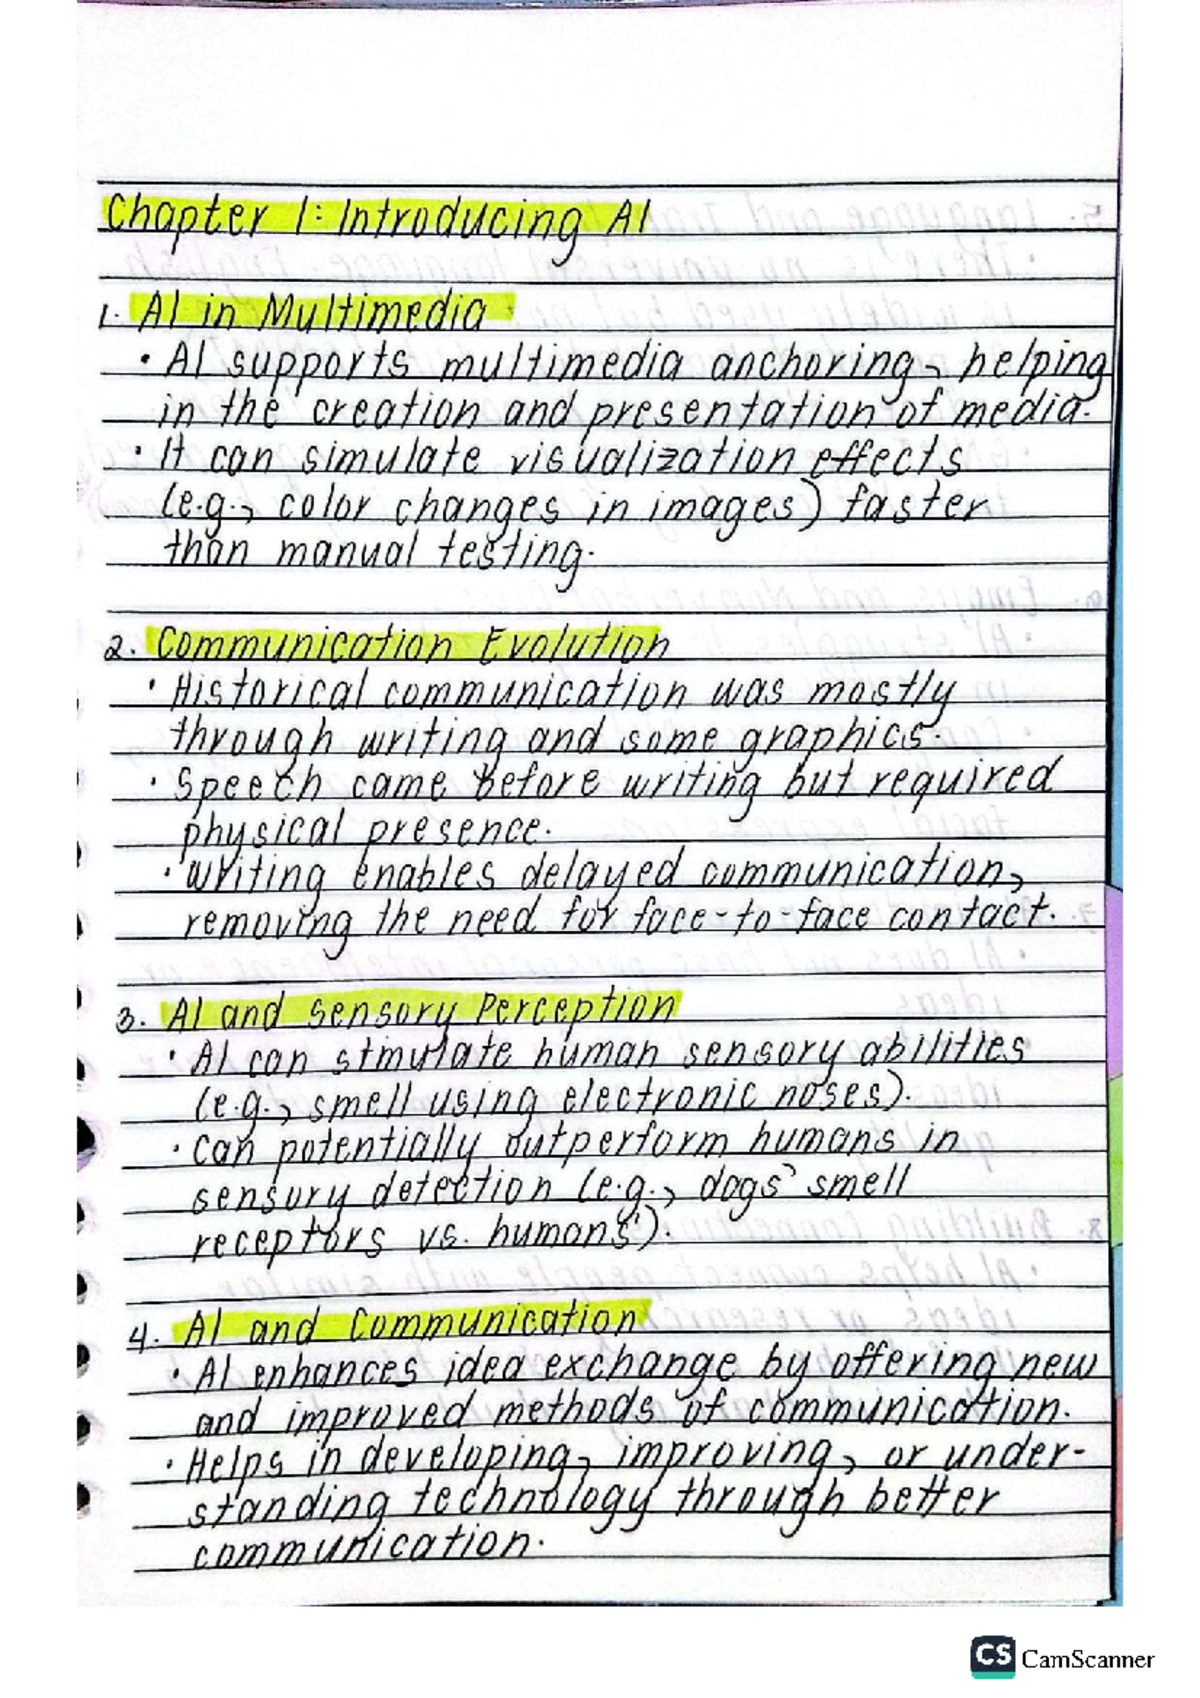 Chapter 1: Introducing AI
1. AI in Multimedia
• AI supports multimedia anchoring, helping
in the creation and presentation of media.
• It can simulate visualization effects
(e.g., color changes in images) faster
than manual testing.
2. Communication Evolution
• Historical communication was mostly
through writing and some graphics.
• Speech came before writing but required
physical presence.
• Writing enables delayed communication,
removing the need for face-to-face contact.
3. AI and Sensory Perception
• AI can stimulate human sensory abilities
(e.g., smell using electronic noses).
• Can potentially outperform humans in
sensory detection (e.g., dogs' smell
receptors vs. humans').
4. AI and Communication
• AI enhances idea exchange by offering new
and improved methods of communication.
• Helps in developing, improving, or under-
standing technology through better
communication.
CS CamScanner